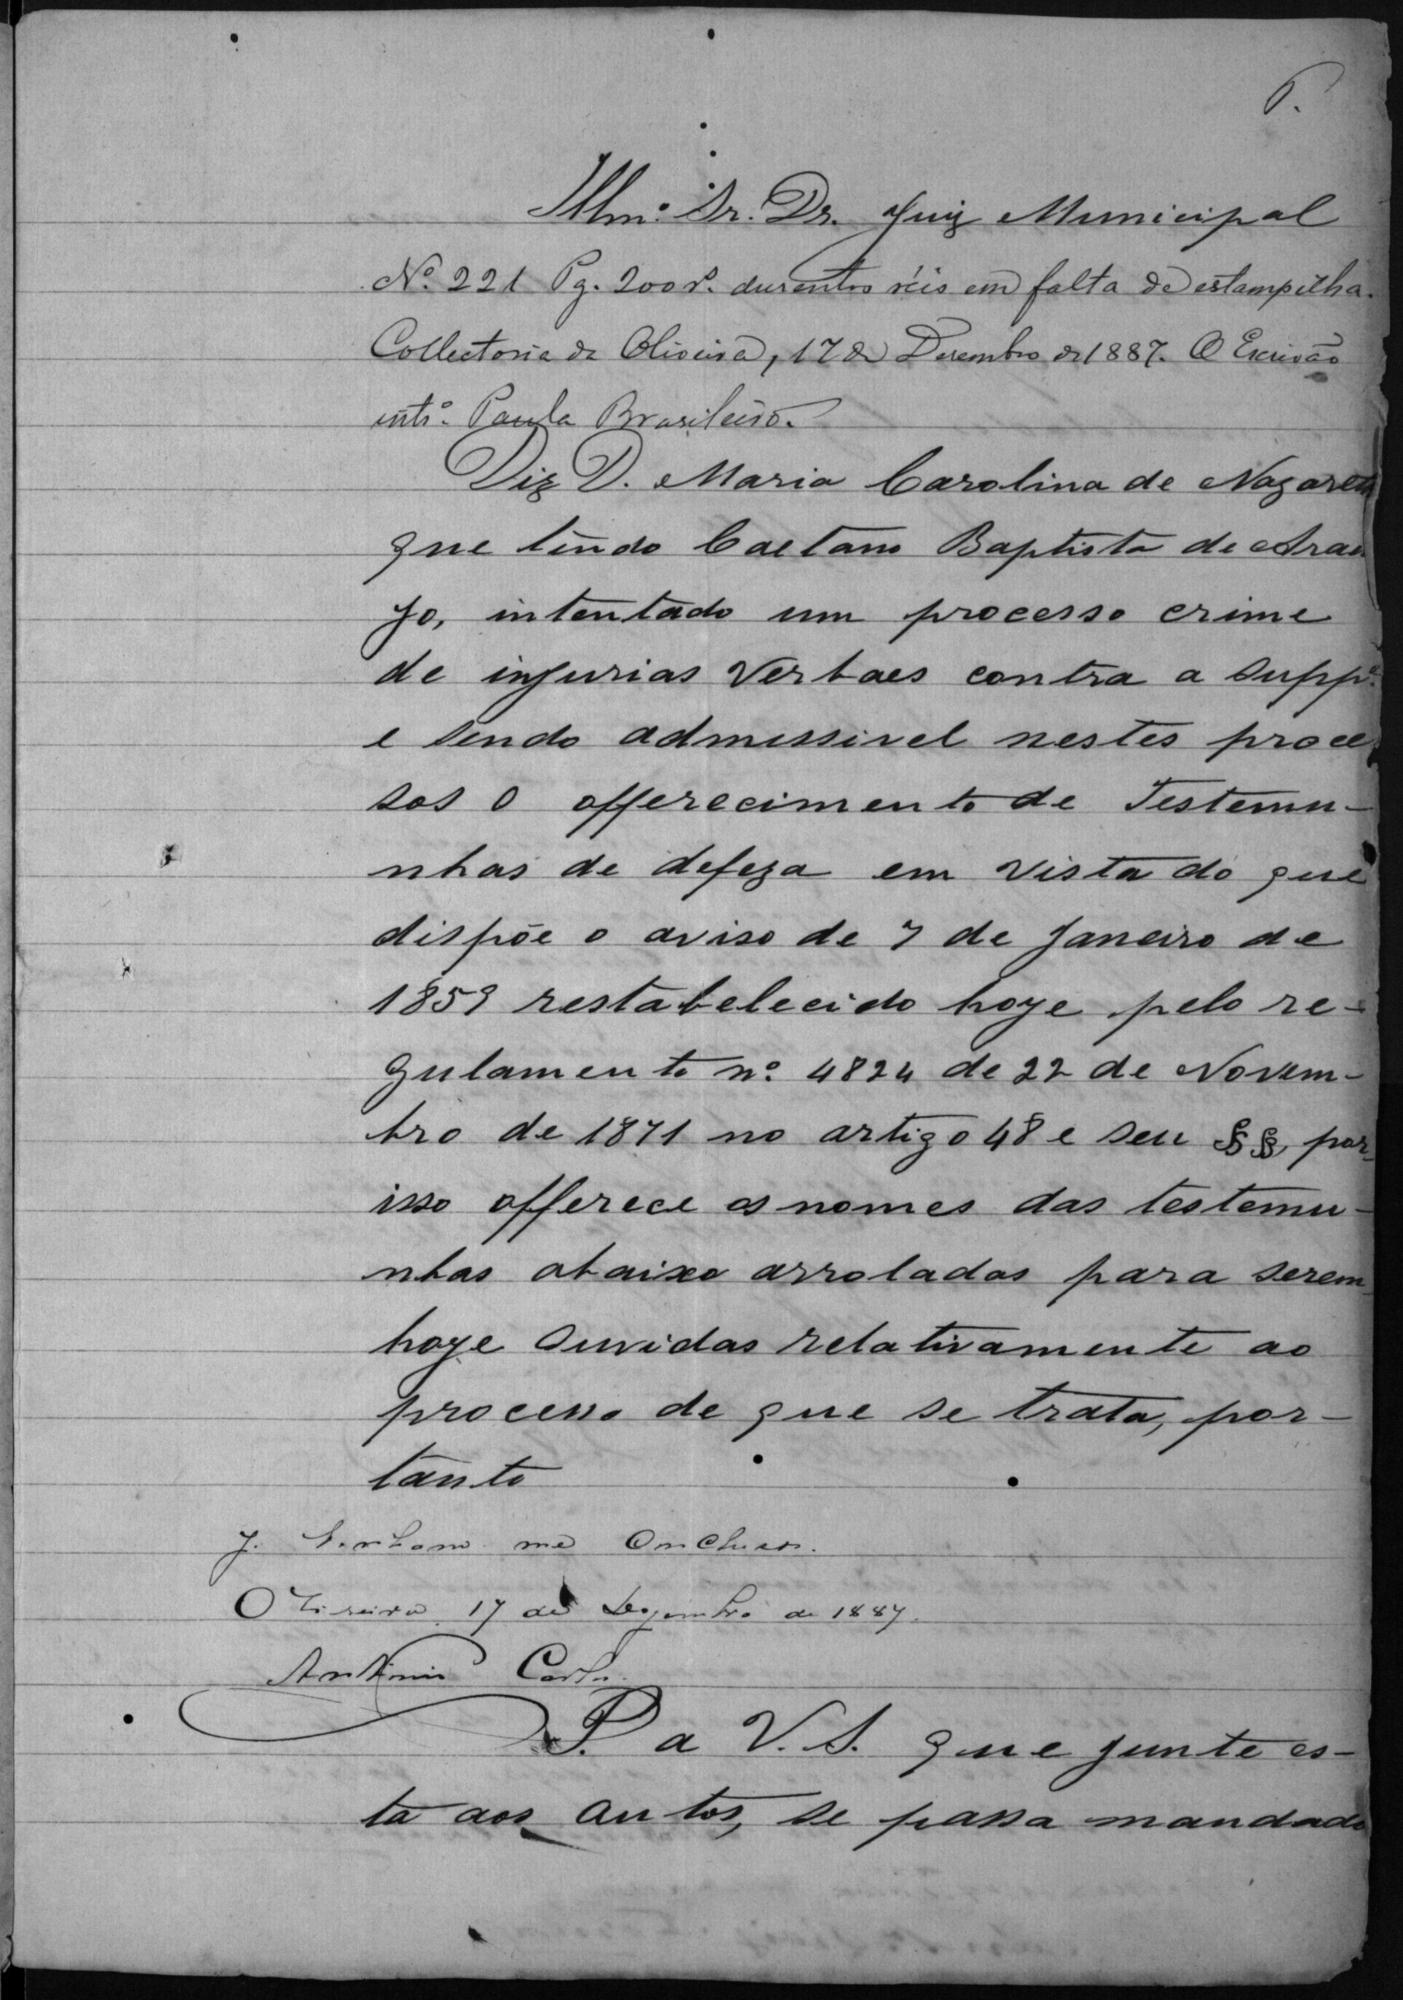 Illmº. Sr. Dr. Juiz Municipal
Nº. 221 Pg. 200 rs. dusentos réis em falta de estampilha.
Collectoria de Oliveira, 17 de Desembro de 1887. O Escrivão
intº. Paula Brasileiro.
Diz D. Maria Carolina de Nazareth
que tendo Caetano Baptista de Arau
jo, intentado um processo crime
de injurias verbaes contra a suppe.
e sendo admissivel nestes proces
sos o offerecimento de Testemu-
nhas de defeza em vista do que
dispõe o aviso de 7 de Janeiro de
1859 restabelecido hoje pelo re-
gulamento nº. 4824 de 22 de Novem-
bro de 1871 no artigo 48 e seu §§, por
isso offerece os nomes das testemu-
nhas abaixo arroladas para serem
hoje ouvidas relativamente ao
processo de que se trata, por-
tanto
J. Venham me Conclusos.
Oliveira, 17 de Dezembro de 1887.
Antonio
P. a V. S. que junte es-
ta aos autos, se passa mandado